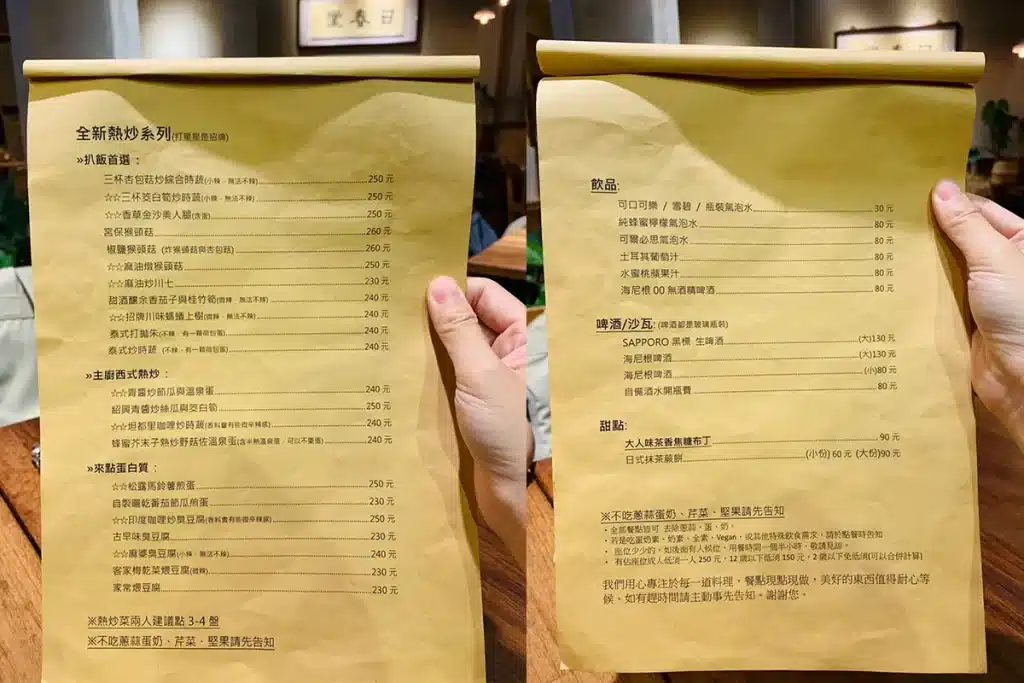 日春堂
全新熱炒系列(打星星是招牌)
»扒飯首選：
三杯杏包菇炒綜合時蔬(小辣，無法不辣)........250 元
☆☆三杯茭白筍炒時蔬(小辣，無法不辣)........250 元
☆☆香草金沙美人腿(含蛋)........250 元
宮保猴頭菇........260 元
椒鹽猴頭菇 (炸猴頭菇與杏包菇)........260 元
☆☆麻油燉猴頭菇........250 元
☆☆麻油炒川七........230 元
甜酒釀余香茄子與桂竹筍(微辣，無法不辣)........240 元
☆☆招牌川味螞蟻上樹(微辣，無法不辣)........240 元
泰式打拋朱(不辣，有一顆荷包蛋)........240 元
泰式炒時蔬 (不辣，有一顆荷包蛋)........240 元
»主廚西式熱炒：
☆☆青醬炒節瓜與溫泉蛋........240 元
紹興青醬炒絲瓜與茭白筍........250 元
☆☆坦都里咖哩炒時蔬(香料會有些微辛辣感)........240 元
蜂蜜芥末子熱炒野菇佐溫泉蛋(含半熟溫泉蛋，可以不要蛋)........240 元
»來點蛋白質：
☆☆松露馬鈴薯煎蛋........250 元
自製曬乾番茄節瓜煎蛋........230 元
☆☆印度咖哩炒臭豆腐(香料會有些微辛辣感)........250 元
古早味臭豆腐........230 元
☆☆麻婆臭豆腐(小辣，無法不辣)........240 元
客家梅乾菜煨豆腐(微辣)........230 元
家常煨豆腐........230 元
※熱炒菜兩人建議點 3-4 盤
※不吃蔥蒜蛋奶、芹菜、堅果請先告知
日春堂
飲品:
可口可樂 / 雪碧 / 瓶裝氣泡水........30 元
純蜂蜜檸檬氣泡水........80 元
可爾必思氣泡水........80 元
土耳其葡萄汁........80 元
水蜜桃蘋果汁........80 元
海尼根 00 無酒精啤酒........80 元
啤酒/沙瓦: (啤酒都是玻璃瓶裝)
SAPPORO 黑標 生啤酒........(大)130 元
海尼根啤酒........(大)130 元
海尼根啤酒........(小)80 元
自備酒水開瓶費........80 元
甜點:
大人味茶香焦糖布丁........90 元
日式抹茶蕨餅........(小份) 60 元 (大份)90 元
※不吃蔥蒜蛋奶、芹菜、堅果請先告知
・全部餐點皆可 去除蔥蒜，蛋，奶。
・若是吃蛋奶素、奶素、全素、Vegan，或其他特殊飲食需求，請於點餐時告知
・座位少少的，如後面有人候位，用餐時間一個半小時，敬請見諒。
・有佔座位成人低消一人 250 元，12 歲以下低消 150 元，2 歲以下免低消(可以合併計算)
我們用心專注於每一道料理，餐點現點現做，美好的東西值得耐心等
候。如有趕時間請主動事先告知。謝謝您。